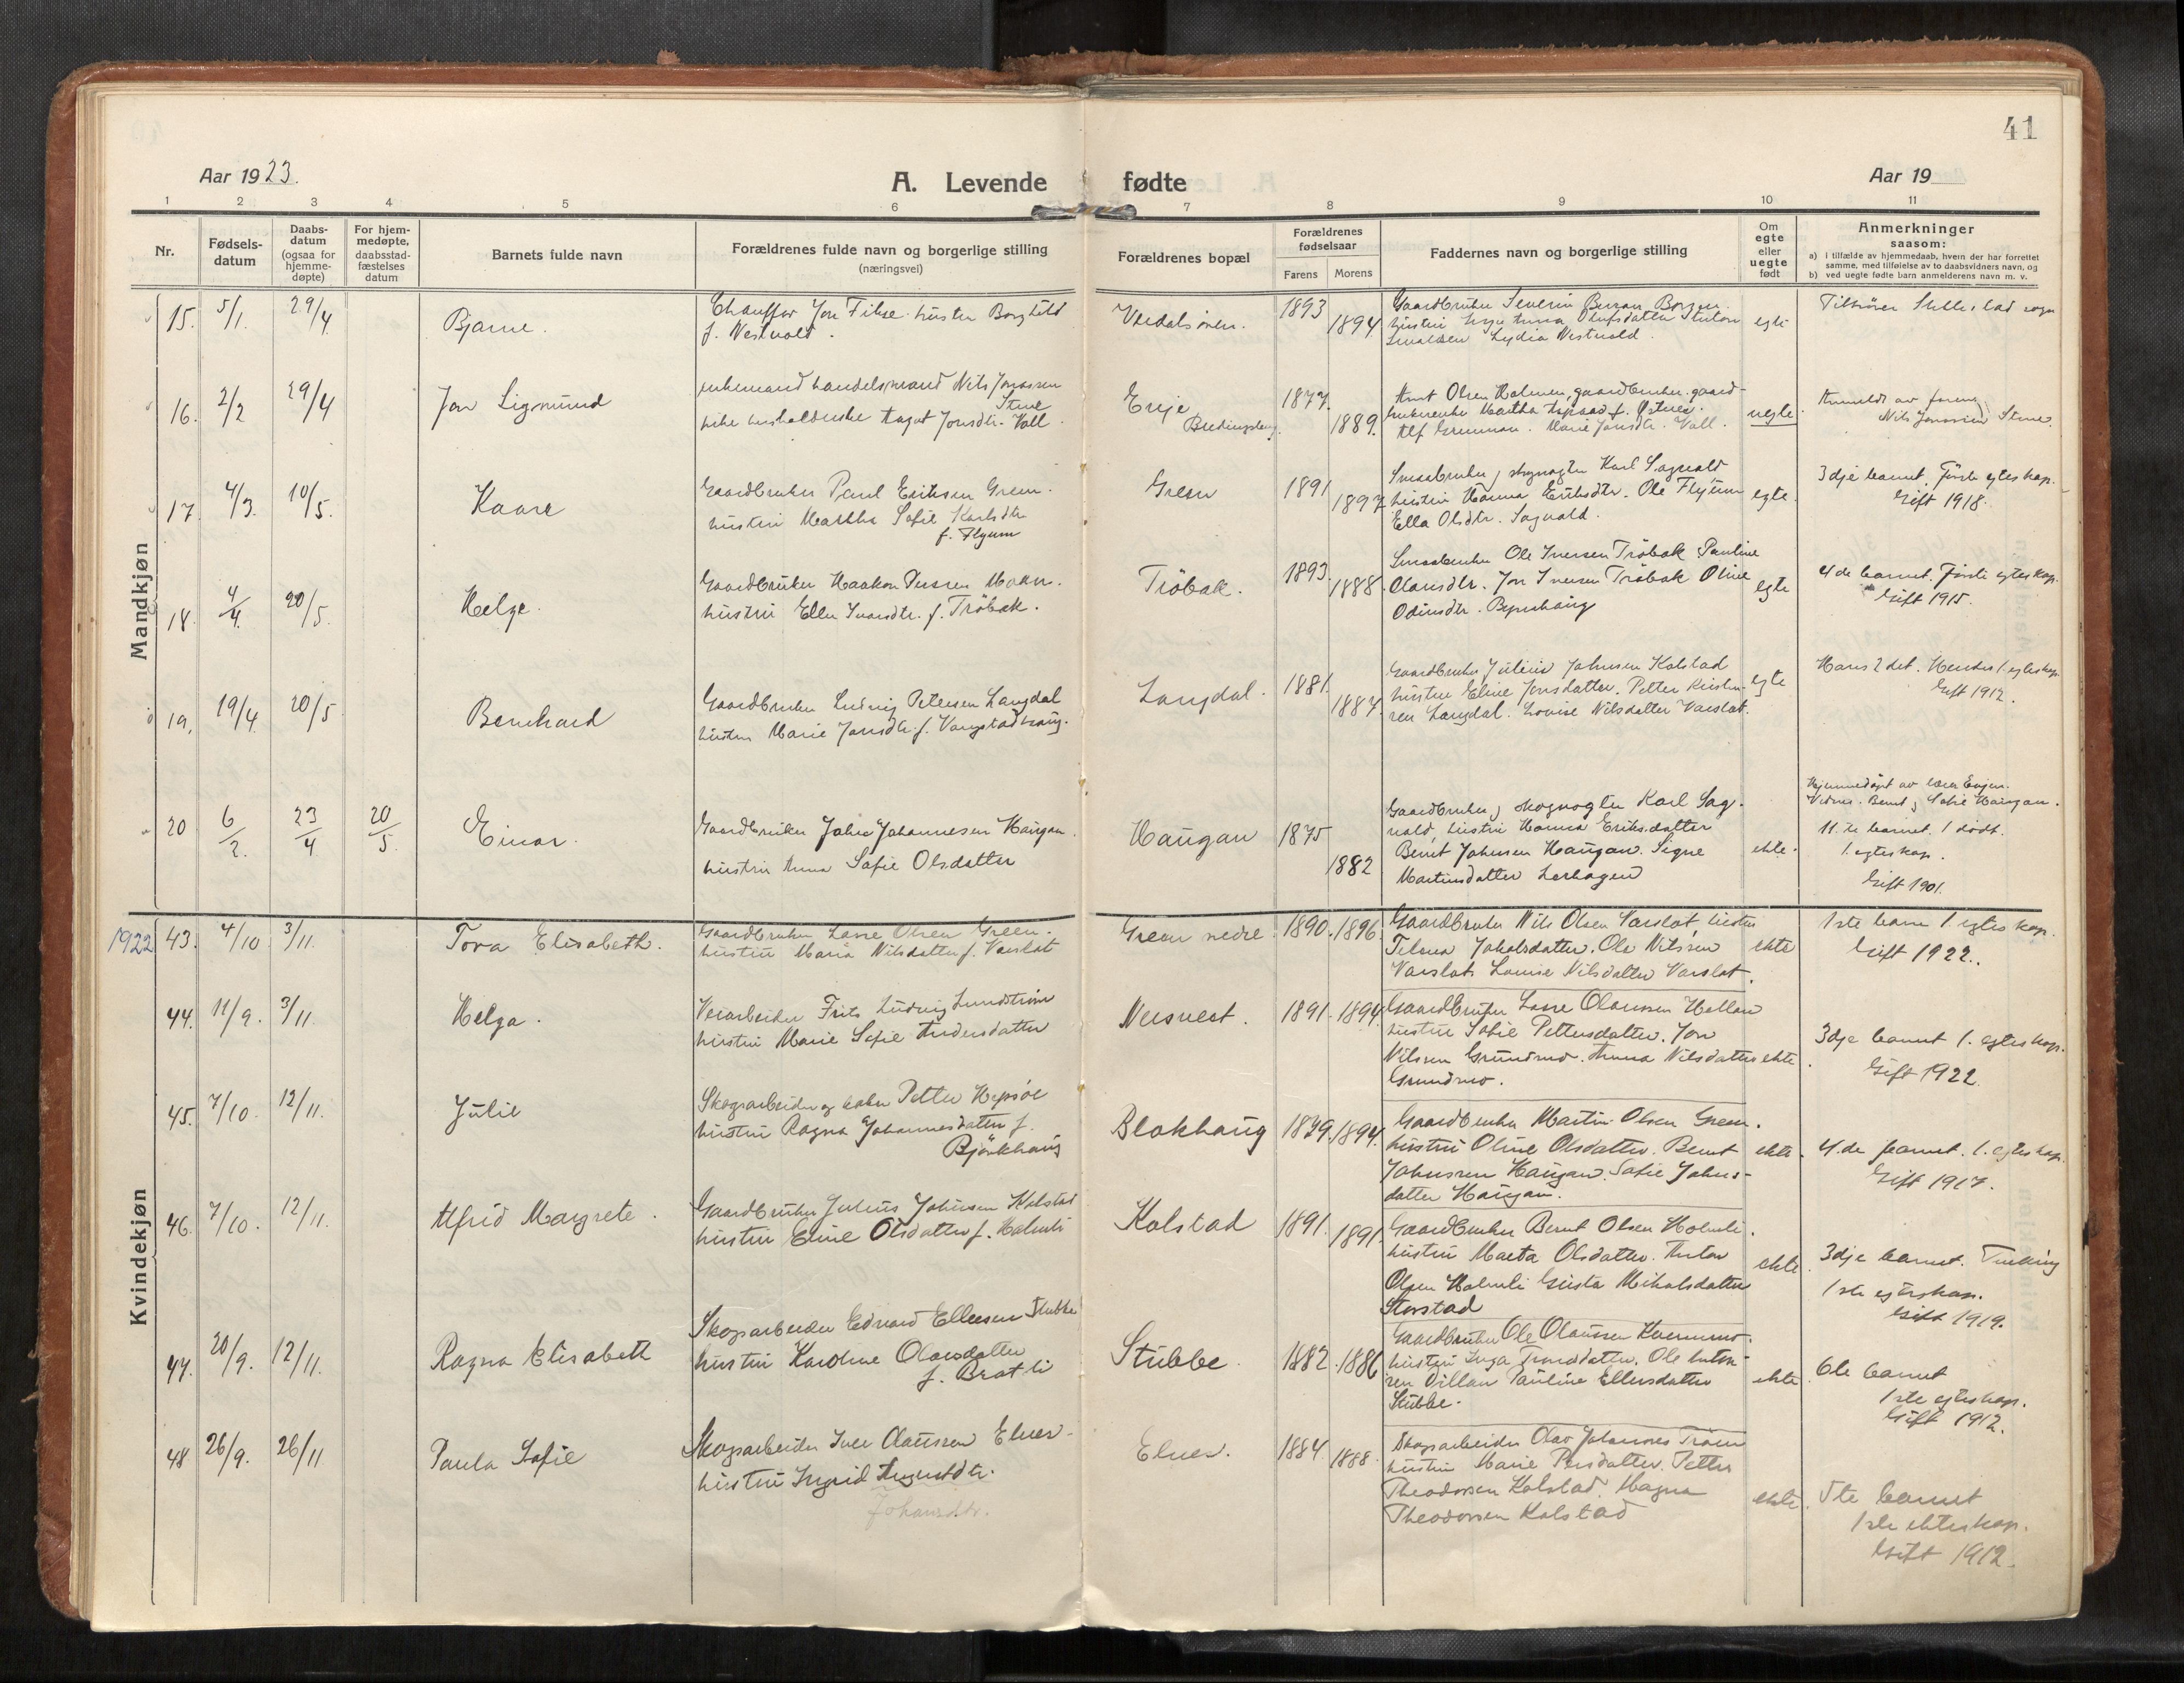 41
Aar 1923.
A. Levende fødte
Aar 19
1 2 3 4 5 6 7 8 9 10 11
Nr.
Fødsels-
datum
Daabs-
datum
(ogsaa for
hjemme-
døpte)
For hjem-
medøpte,
daabsstad-
fæstelses
datum
Barnets fulde navn
Forældrenes fulde navn og borgerlige stilling
(næringsvei)
Forældrenes bopæl
Forældrenes
fødselsaar
Farens Morens
Faddernes navn og borgerlige stilling
Om
egte
eller
uegte
født
Anmerkninger
saasom:
a) i tilfælde av hjemmedaab, hvem der har forrettet
samme, med tilføielse av to daabsvidners navn, og
b) ved uegte fødte barn anmelderens navn m. v.
Mandkjøn
15. 5/1. 29/4 Bjarne.
Chauffør Jon Fikse hustru Borghild
f. Vestvold.
1893
1894
Gaardbruker Severin
Lydia Vestvold.
egte
16. 2/2 29/4 Jon Sigmund
enkemand handelsmand Nils Jonassen
Stene
pike husholderske Aagot Jonsdtr. Vall.
1877.
1889.
Arnt Olsen Holmen, gaardbruker. gaard-
Marie Jonsdtr. Vall.
uegte.
Anmeldt av faren
Nils Jonassen Stene.
17. 4/3. 10/5. Kaare
Gaardbruker Paul Eriksen Green.
hustru Martha Sofie Karlsdtr
f. Flyum
Green
1891
1897
Smaabruker, skogvogter Karl Sagvold
hustru Hanna Eriksdtr. Ole Flyum
Ella Olsdtr. Sagvold.
egte.
3dje barnet. Første egteskap.
Gift 1918.
18. 4/4. 20/5. Helge.
Gaardbruker Haakon Moan.
hustru Ellen Iversdtr. f. Trøbak.
Trøbak.
1893.
1888.
Smaabruker Ole Iversen Trøbak Pauline
Olausdtr. Jon Iversen Trøbak Oline
Odinsdtr.
egte
4de barnet. Første egteskap.
Gift 1915.
19. 19/4. 20/5 Bernhard
Gaardbruker Ludvig Petersen Langdal
hustru Marie Jonsdtr. f. Vangstadhaug.
Langdal.
1881.
1884.
Gaardbruker Julius Johnsen Kolstad
hustru Eline Jonsdatter. Petter Kristen-
sen Langdal. Lovise Nilsdatter Varslot.
egte
Hans 2det. Hendes 1. egteskap.
Gift 1912.
20 6/2. 23/4 20/5 Einar.
Gaardbruker John Johannesen Haugan.
hustru Anna Sofie Olsdatter
Haugan
1875
1882
Gaardbruker, skogvogter Karl Sag-
vold, hustru Hanna Eriksdatter
Bernt Johnsen Haugan. Signe
Martinsdatter Lerhagen
ekte.
Hjemmedøpt av
Vidner. Bernt, Sofie Haugan.
11.te barnet. 1 dødt.
1. egteskap.
Gift 1901.
Kvindekjøn
1922 43. 4/10 3/11. Tora Elisabeth.
Gaardbruker Lasse Olsen Green.
hustru Maria Nilsdatter f. Varslot
Green nedre
1890. 1896.
Gaardbruker Nils Olsen Varslot, hustru
Jakobsdatter. Ole Nilssen
Varslot. Lovise Nilsdatter Varslot.
ekte
1ste barn 1. egteskap.
Gift 1922.
44. 11/9. 3/11. Helga.
Veiarbeider Frits Ludvig Lundstrøm
hustru Marie Sofie Andersdatter
1891. 1894.
Gaardbruker Lasse Olaussen Hellan
hustru Sofie Pettersdatter. Jon
Nilsen Grundmo. Anna Nilsdatter
Grundmo.
ekte.
3dje barnet 1. egteskap.
Gift 1922.
45. 7/10. 12/11. Julie
Skogsarbeider og Petter Hepsøe
hustru Ragna Johannesdatter f.
Bjørkhaug
Blokhaug
1829. 1894.
Gaardbruker Martin Olsen Green.
hustru Oline Olsdatter. Bernt
Johnsen Haugan. Sofie Johns-
datter Haugan.
ekte.
4.de barnet. 1. egteskap.
Gift 1917.
46. 7/10. 12/11. Alfrid Margrete.
Gaardbruker Julius Johnsen Kolstad
hustru Eline Olsdatter f. Holmli
Kolstad
1891. 1891.
Gaardbruker Bernt Olsen Holmli.
hustru Marta Olsdatter. Anton
Olsen Holmli Gusta Mikalsdatter
Storstad
ekte.
3dje barnet. Tvilling
1ste egteskap.
Gift 1919.
47. 20/9. 12/11. Ragna Elisabeth
Skogsarbeider Edvard Ellesen Stubbe
hustru Karoline Olausdatter
f. Bratli
Stubbe.
1882. 1886
Gaardbruker Ole Olaussen Kvernmo.
hustru Inga Tronsdatter. Ole Anton-
sen Dillan Pauline Ellersdatter
Stubbe.
ekte.
6te barnet
1ste egteskap.
Gift 1912.
48 26/9. 26/11 Paula Sofie
Skogsarbeider Iver Olaussen Elnes.
hustru Ingrid Augustdtr.
Johansdtr.
Elnes.
1884. 1888.
Skogsarbeider Olav Johannes
hustru Marie Persdatter. Petter
Theodorsen Kolstad. Magna
Theodorsen Kolstad
ekte.
5te barnet
1ste ekteskap.
Gift 1912.